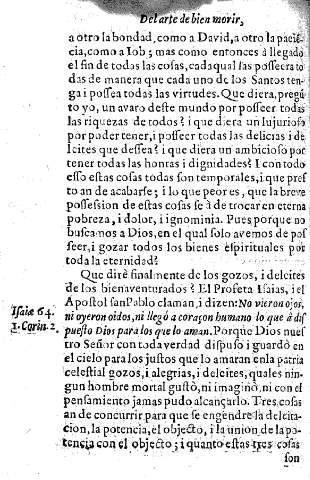 Del arte de bien morir,
a otro la bondad, como a David, a otro la pacië-
cia, como a Iob; mas como entonces à llegado
el fin de todas las cosas, cada qual las posseera to
das de manera que cada uno de los Santos ten-
ga i possea todas las virtudes. Que diera, pregū
to yo, un avaro deste mundo por posseer todas
las riquezas de todos? i que diera un lujurioso
por poder tener, i posseer todas las delicias i de
leites que dessea? i que diera un ambicioso por
tener todas las honras i dignidades? I con todo
esso estas cosas todas son temporales, i que pres
to an de acabarse; i lo que peor es, que la breve
possession de estas cosas se à de trocar en eterna
pobreza, i dolor, i ignominia. Pues porque no
buscamos a Dios, en el qual solo avemos de pos
seer, i gozar todos los bienes espirituales por
toda la eternidad?
Que dirè finalmente de los gozos, i deleites
de los bienaventurados? El Profeta Isaias, i el
Isaiæ 64.
Apostol san Pablo claman, i dizen: No vieron ojos,
1. Corin. 2.
ni oyeron oidos, ni llegó a coraçon humano lo que à dis
puesto Dios para los que lo aman. Porque Dios nues
tro Señor con toda verdad dispuso i guardò en
el cielo para los justos que lo amaran en la patria
celestial gozos, i alegrias, i deleites, quales nin-
gun hombre mortal gustò, ni imaginò, ni con el
pensamiento jamas pudo alcançarlo. Tres cosas
an de concurrir para que se engendre la deleita-
cion, la potencia, el objecto, i la union de la po-
tencia con el objecto; i quanto estas tres cosas
son